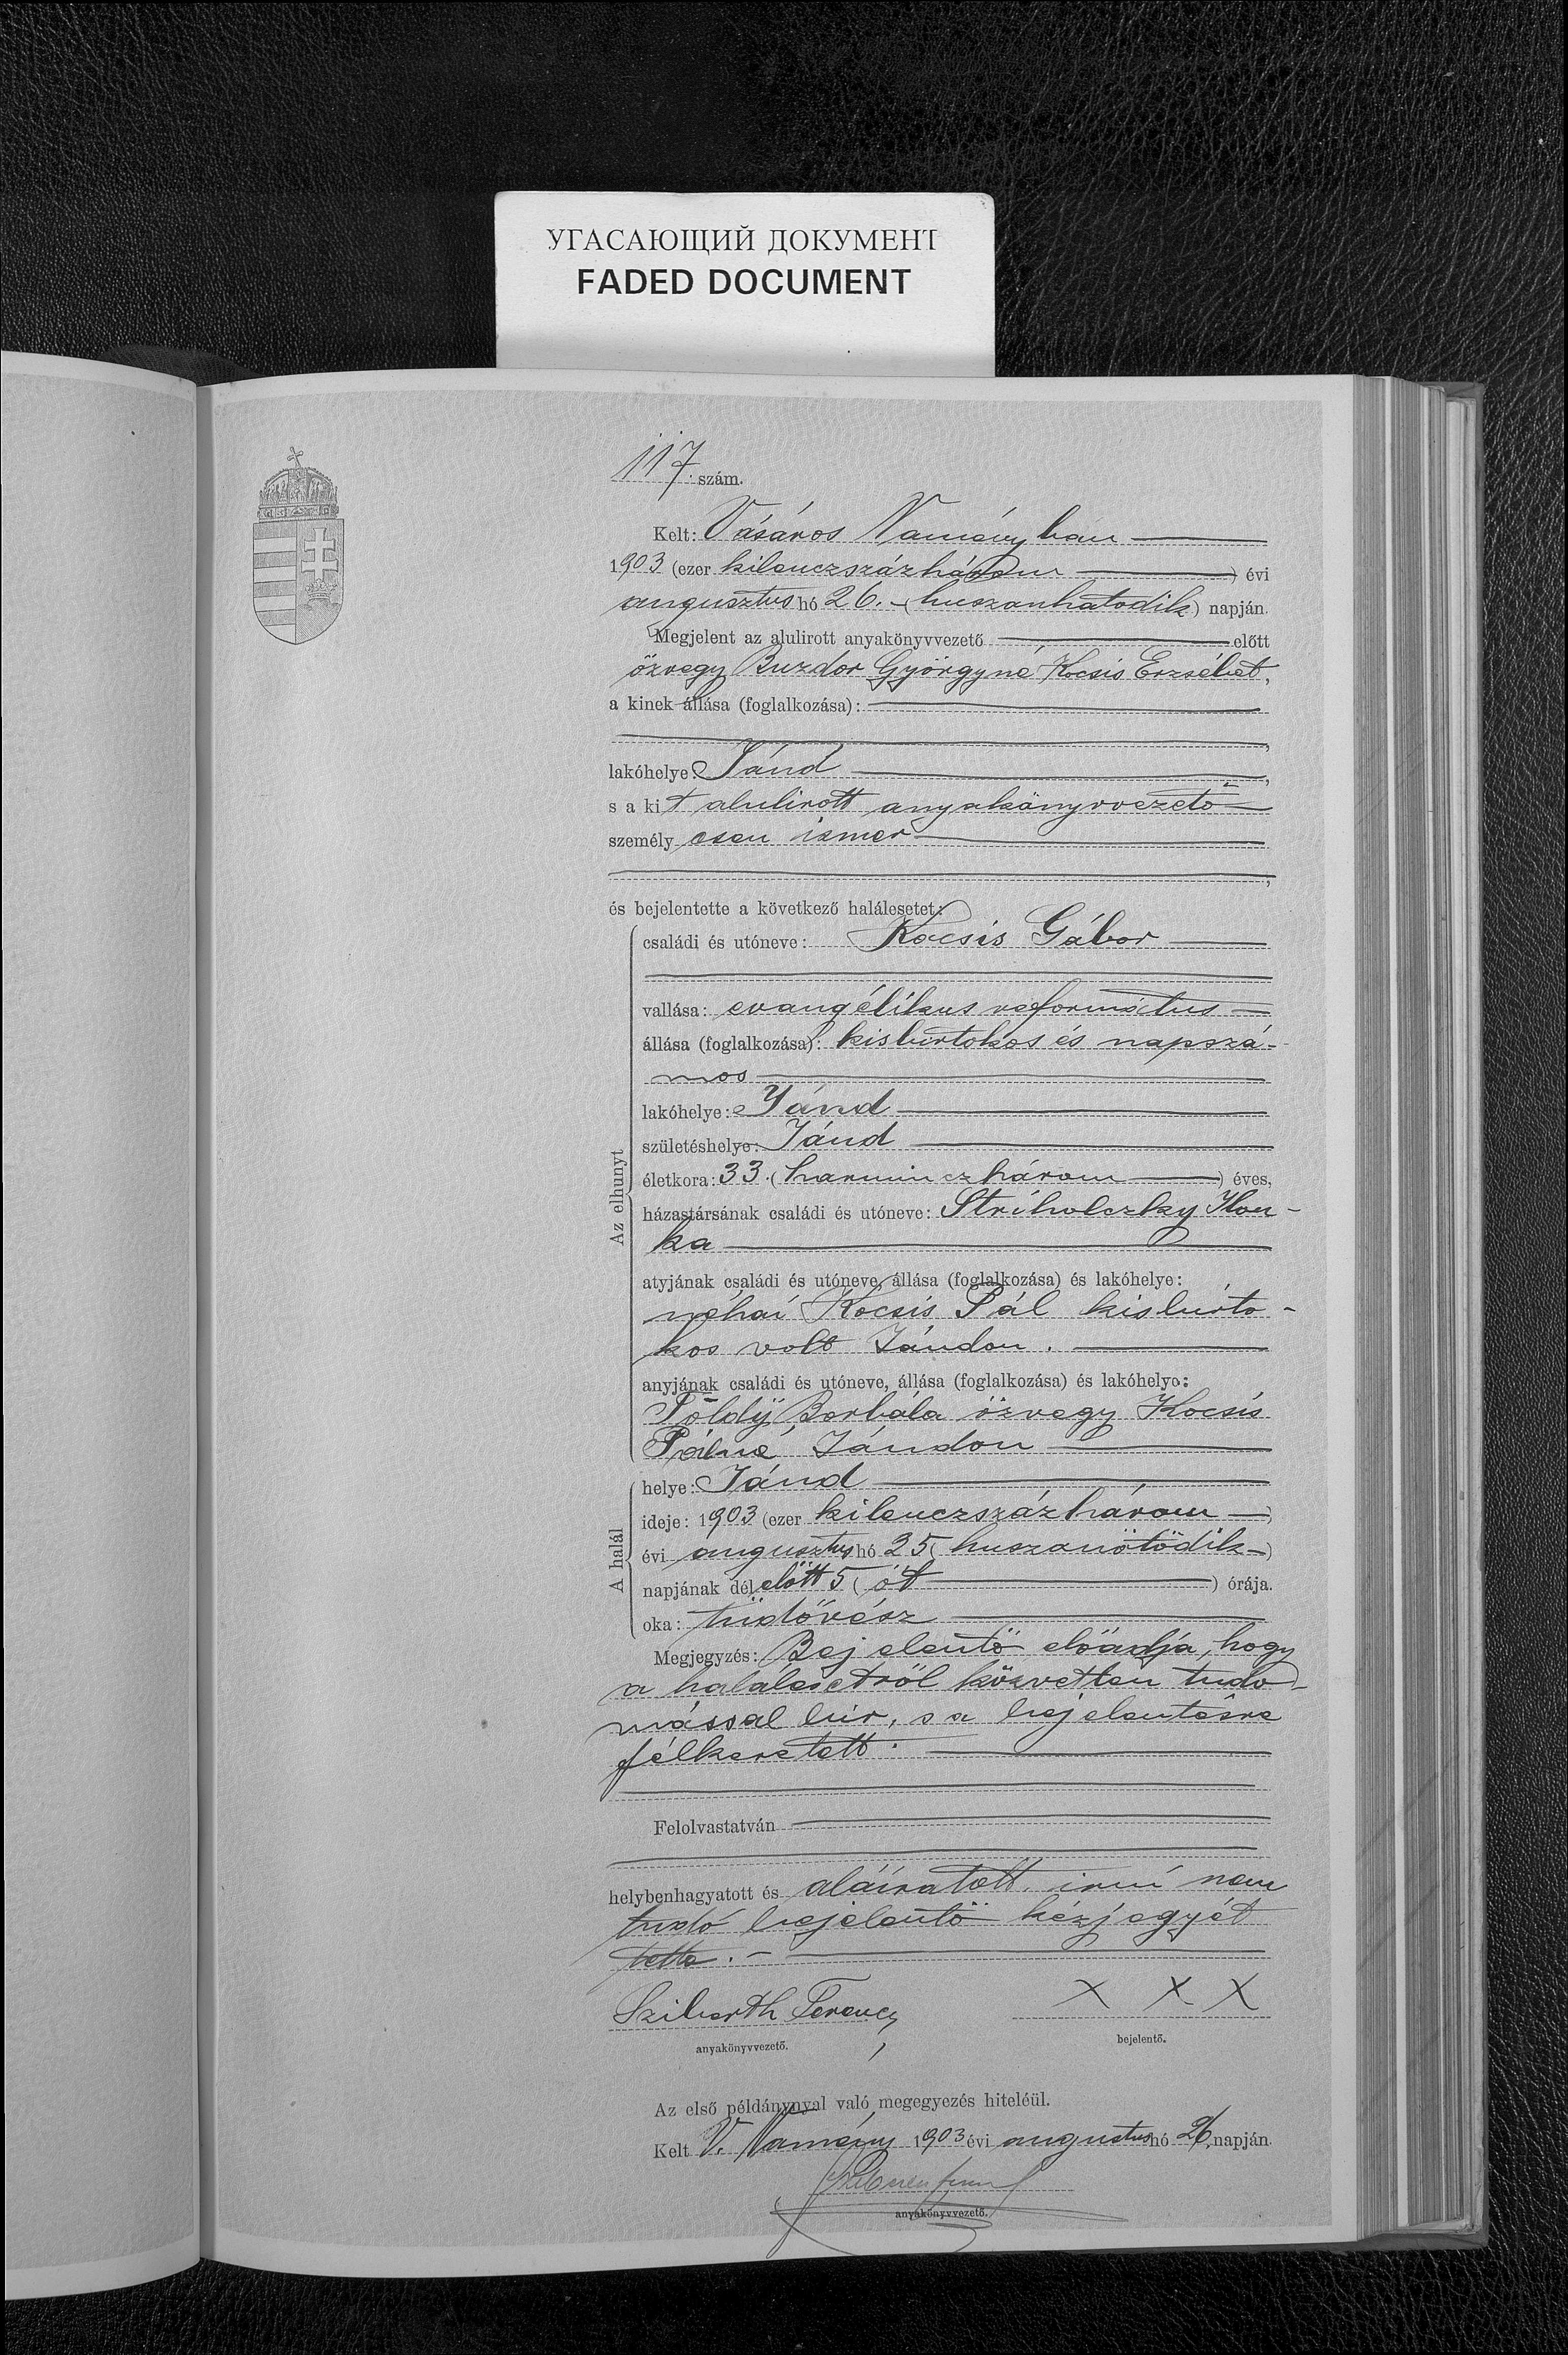 УГАСАЮЩИЙ ДОКУМЕНТ
FADED DOCUMENT
117. szám.
Kelt: Vásáros Naményban
1903 (ezer kilenczszázhárom) évi
augusztus hó 26. (huszonhatodik) napján.
Megjelent az alulirott anyakönyvvezető előtt
özvegy Buzdor Györgyné Kocsis Erzsébet,
a kinek állása (foglalkozása):
lakóhelye: Jánd,
s a kit alulirott anyakönyvvezető
személyesen ismer
,
és bejelentette a következő halálesetet:
Az elhunyt
családi és utóneve: Kocsis Gábor
vallása: evangélikus református
állása (foglalkozása): kisbirtokos és napszá-
mos
lakóhelye: Jánd
születéshelye: Jánd
életkora: 33. (harminczhárom) éves,
házastársának családi és utóneve: Striholczky Ilon-
ka
atyjának családi és utóneve, állása (foglalkozása) és lakóhelye:
néhai Kocsis Pál kisbirto-
kos volt Jándon.
anyjának családi és utóneve, állása (foglalkozása) és lakóhelye:
Földÿ Borbála özvegy Kocsis
Pálné, Jándon
A halál
helye: Jánd
ideje: 1903 (ezer kilenczszázhárom)
évi augusztus hó 25 (huszonötödik)
napjának délelőtt 5 (öt) órája.
oka: tüdővész
Megjegyzés: Bejelentő előadja, hogy
a halálesetről közvetlen tudo-
mással bir, s a bejelentésre
félkeretett.
Felolvastatván
helybenhagyatott és aláíratott, irni nem
tudó bejelentő kézjegyét
tette.
Sziberth Ferencz x x x
anyakönyvvezető. bejelentő.
Az első példánynyal való megegyezés hiteléül.
Kelt V. Namény 1903 évi augustus hó 26 napján.
anyakönyvvezető.